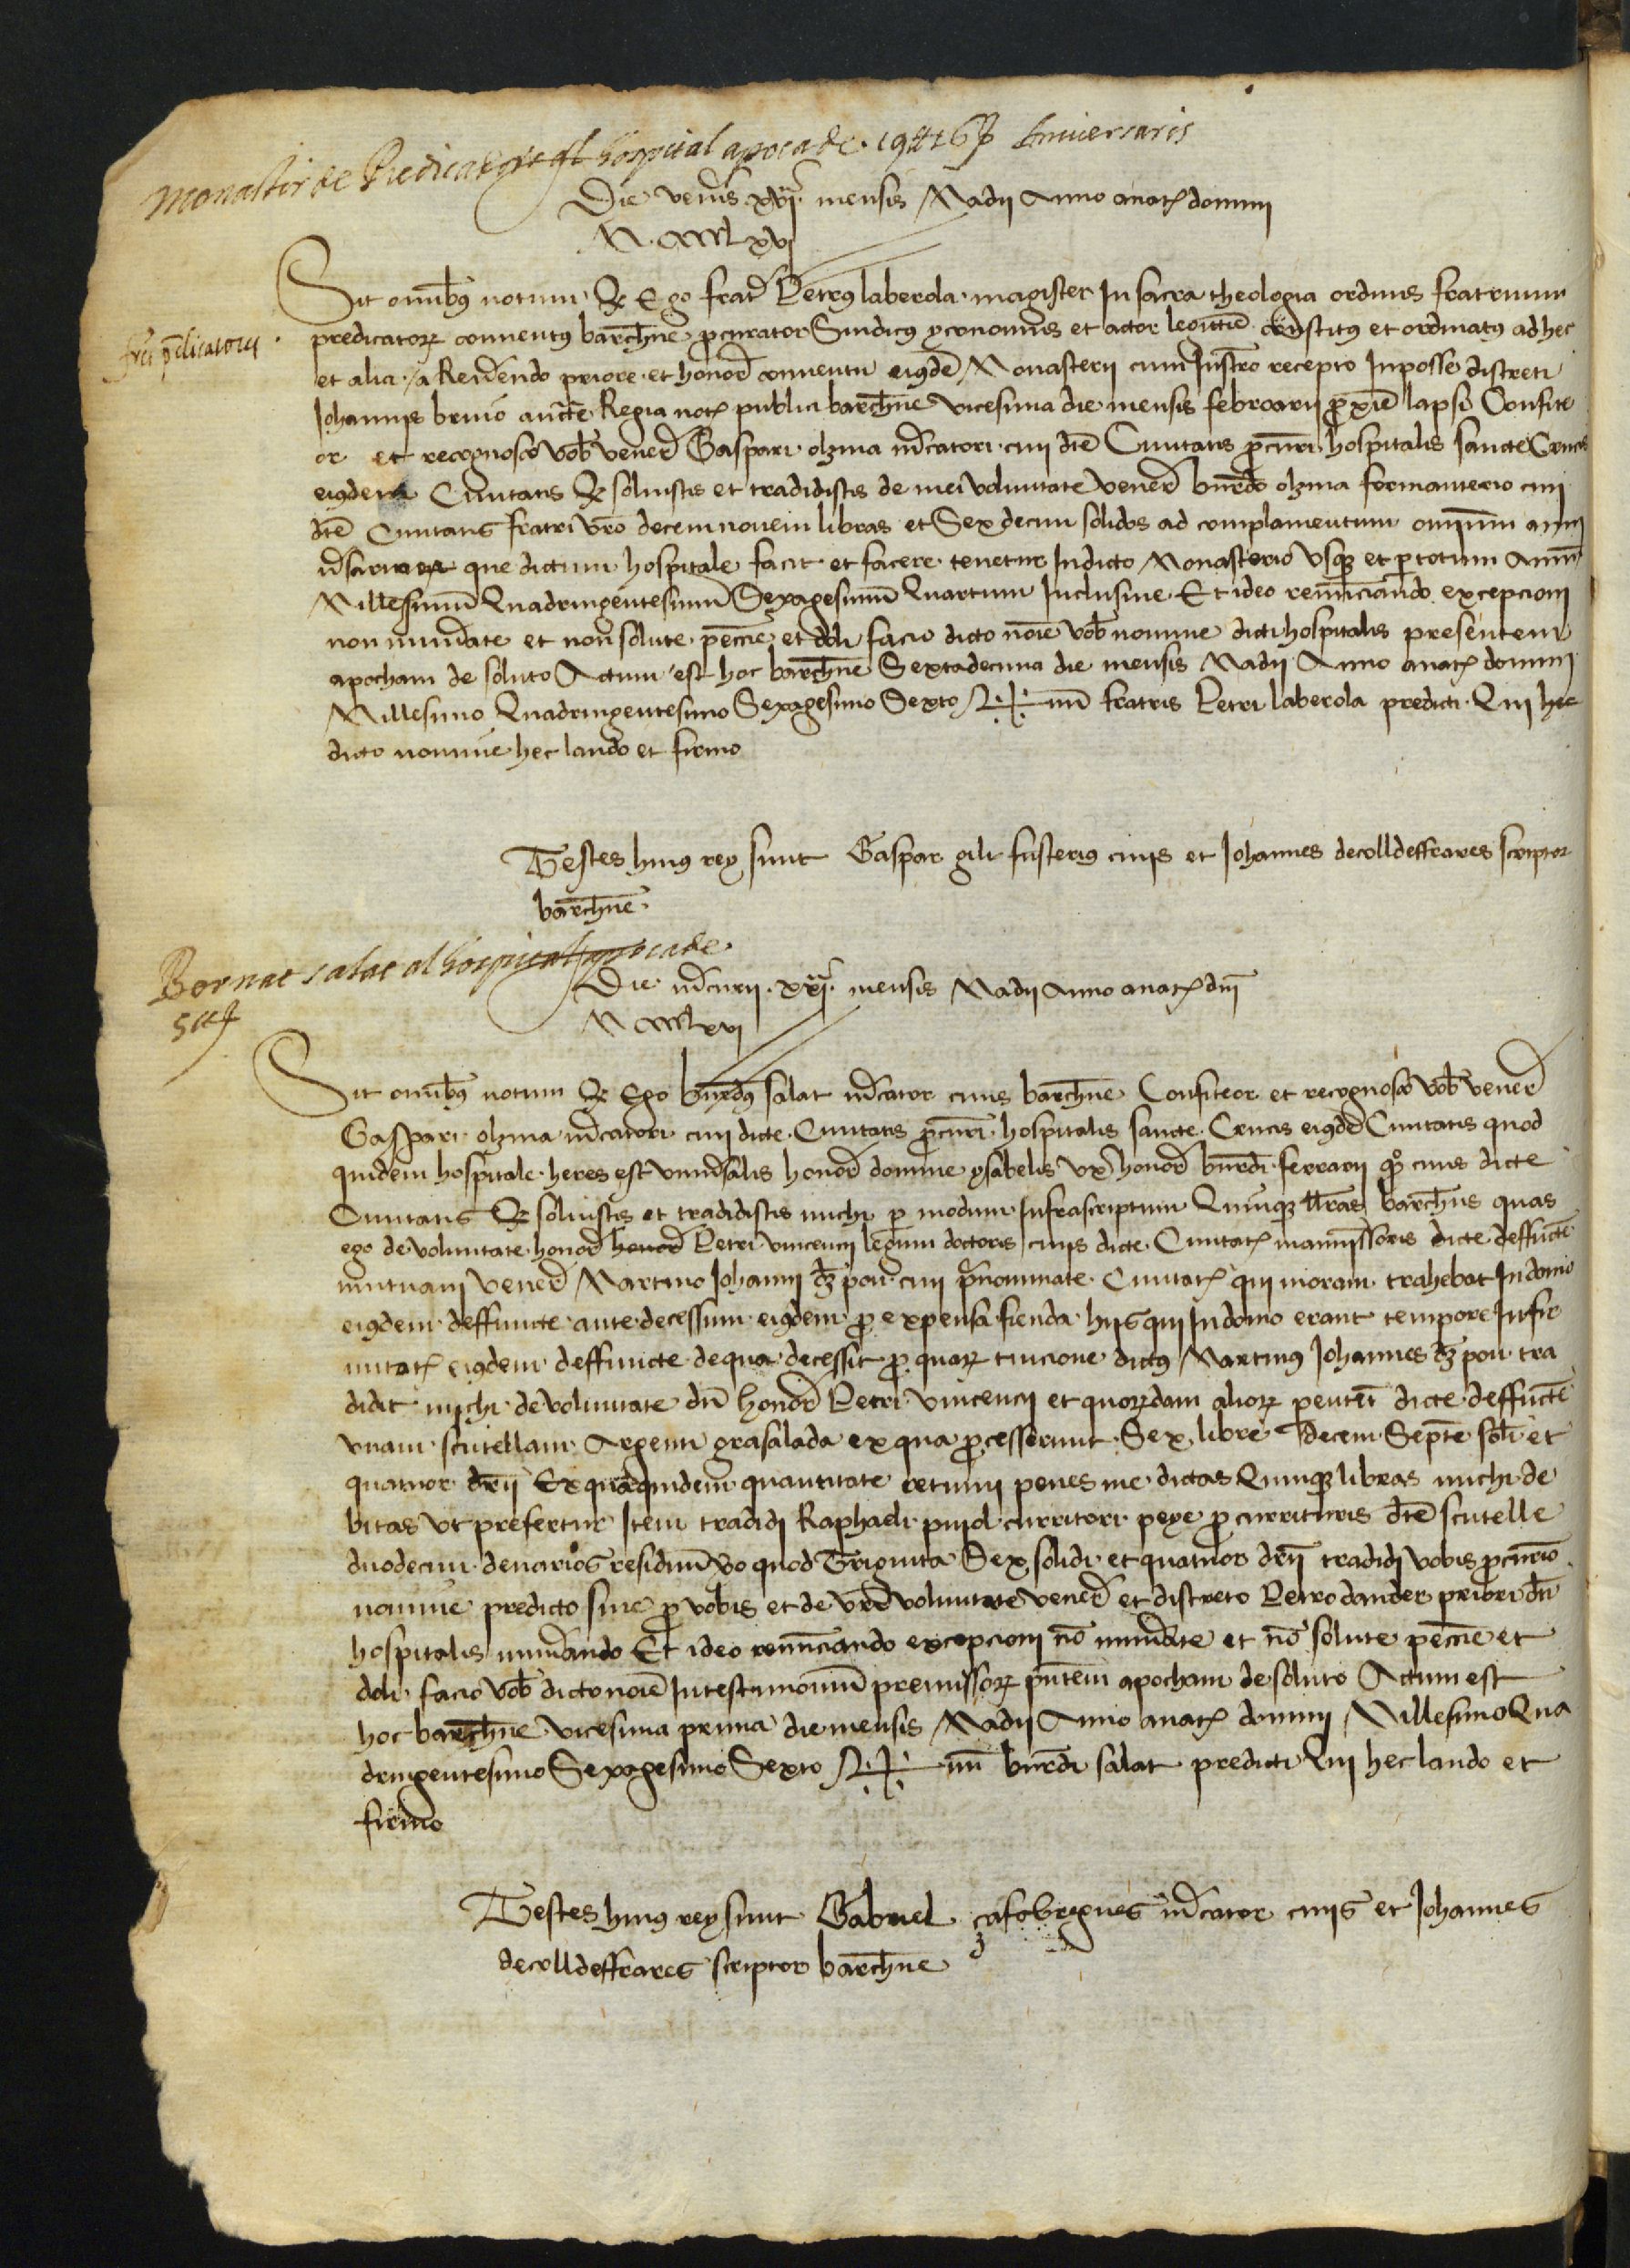 Monastir de Predicadors al hospital apoca de 19 ₶ 16 ß Aniversaris
Die veneris xvi mensis Madii Anno anatꝭ domini
M CCCC lxvj
Sit omnibꝰ notum Qꝫ Ego frat̃ Petrꝰ laberola magister In sacra theologia ordinis fratrum
fr̃m p̃dicatorũ
predicatorꝝ conventꝰ barchñe procurator Sindicꝰ yconomus et actor legittie constitꝰ et ordinatꝰ ad hec
et alia a Reverendo priore et honor̃ conventu eiꝰdẽ Monasterii cum Instr̃o recepto In posse discreti
Johannis bruno auctẽ Regia notꝭ publici barchñe vicesima die mensis febroarii proxiẽ lapsi Confite
or et recognosco vob̃ vener̃ Gaspari olzina m̃catori civi dc̃e Civitatis procur̃i hospitalis sancte Crucis
eiꝰdem Civitatis Qꝫ solvistis et tradidistis de mei voluntate vener̃ bñrdo olzina formanterio civi
dc̃e Civitatis fratri vr̃o decem novem libras et Sexdecim solidos ad complementum omnium anni
v̾sariorꝝ que dictum hospitale facit et facere tenetur In dicto Monasterio Usqꝫ et per totum Annũ
Millesimũ Quadringentesimũ Sexagesimũ Quartum Inclusive Et ideo renũciando excepcioni
non numerate et non solute peccũe et doli facio dicto noĩe vob̃ nomine dicti hospitalis presentem
apocham de soluto Actum est hoc barchñe Sextadecima die mensis Madii Anno anatꝭ domini
Millesimo Quadringentesimo Sexagesimo Sexto Sig+nũ fratris Petri laberola predicti Qui hec
dicto nomine hec laudo et firmo
Testes huiꝰ rey sunt Gaspar gili fusteriꝰ civis et Johannes de colldeffrares scriptor
barchñe
Bernat salat al hospital apoca de
5 ₶
Die m̃curii xxi mensis Madii Anno anatꝭ dñi
M CCCC lxvi
Sit omnibꝰ notum Qꝫ Ego bñrdꝰ salat m̃cator civis barchñe Confiteor et recognosco vob̃ vener̃
Gaspari olzina m̃catori civi dicte Civitatis procur̃i hospitalis sancte Crucis eiꝰdẽ Civitatis quod
quidem hospitale heres est universalis honor̃ domine ysabelis ux̃ honor̃ bñrdi ferrarii qº civis dicte
Civitatis Qꝫ solvistis et tradidistis michi per modum Infrascriptum Quinqꝫ ll̃ras barchñs quas
ego de voluntate honor̃ honor̃ Petri vincencii legum doctoris civis dicte Civitatꝭ manumissoris dicte deffucte
mutuavi vener̃ Martino Johanni dez pou civi prenominate Civitatꝭ qui moram trahebat In domo
eiꝰdem deffuncte ante decessum eiꝰdem pro expensa fienda hiis qui In domo erant tempore Infir
mitatꝭ eiꝰdem deffuncte de qua decessit pro quarꝝ tuicione dictꝰ Martinꝰ Johannes dez pou tra
didit michi de voluntate dc̃i honor̃ Petri vincencii et quorꝝdam aliorꝝ dicte deffucte
unam scutellam Argenti grasalada ex qua processerunt Sex libre decem Septẽ sol̃i et
quatuor dr̃ii Ex qua quidem quantitate retinui penes me dictas Quinqꝫ libras michi de
bitas ut prefertur Item tradidi Raphaeli pujol curritori peye pro curritiris dc̃e scutelle
duodecim denarios residuũ vo quod Triginta Sex solidi et quatuor dr̃ii tradidi vobis procur̃io
nomine predicto sive pro vobis et de vr̃a voluntate vener̃ et discreto Petro dander priori dc̃i
hospitalis numerando Et ideo renũciando excepcioni nõ numerate et nõ solute peccũe et
doli facio vob̃ dicto noĩe In testimoniũ premissorꝝ pñtem apocham de soluto Actum est
hoc barchñe vicesima prima die mensis Madii Anno anatꝭ domini Millesimo Qua
dringentesimo Sexagesimo Sexto Sig+nũ bñrdi salat predicti Qui hec laudo et
firmo
Testes huiꝰ rey sunt Gabriel çafabregues m̃cator civis et Johannes
de colldeffrares scriptor barchñe